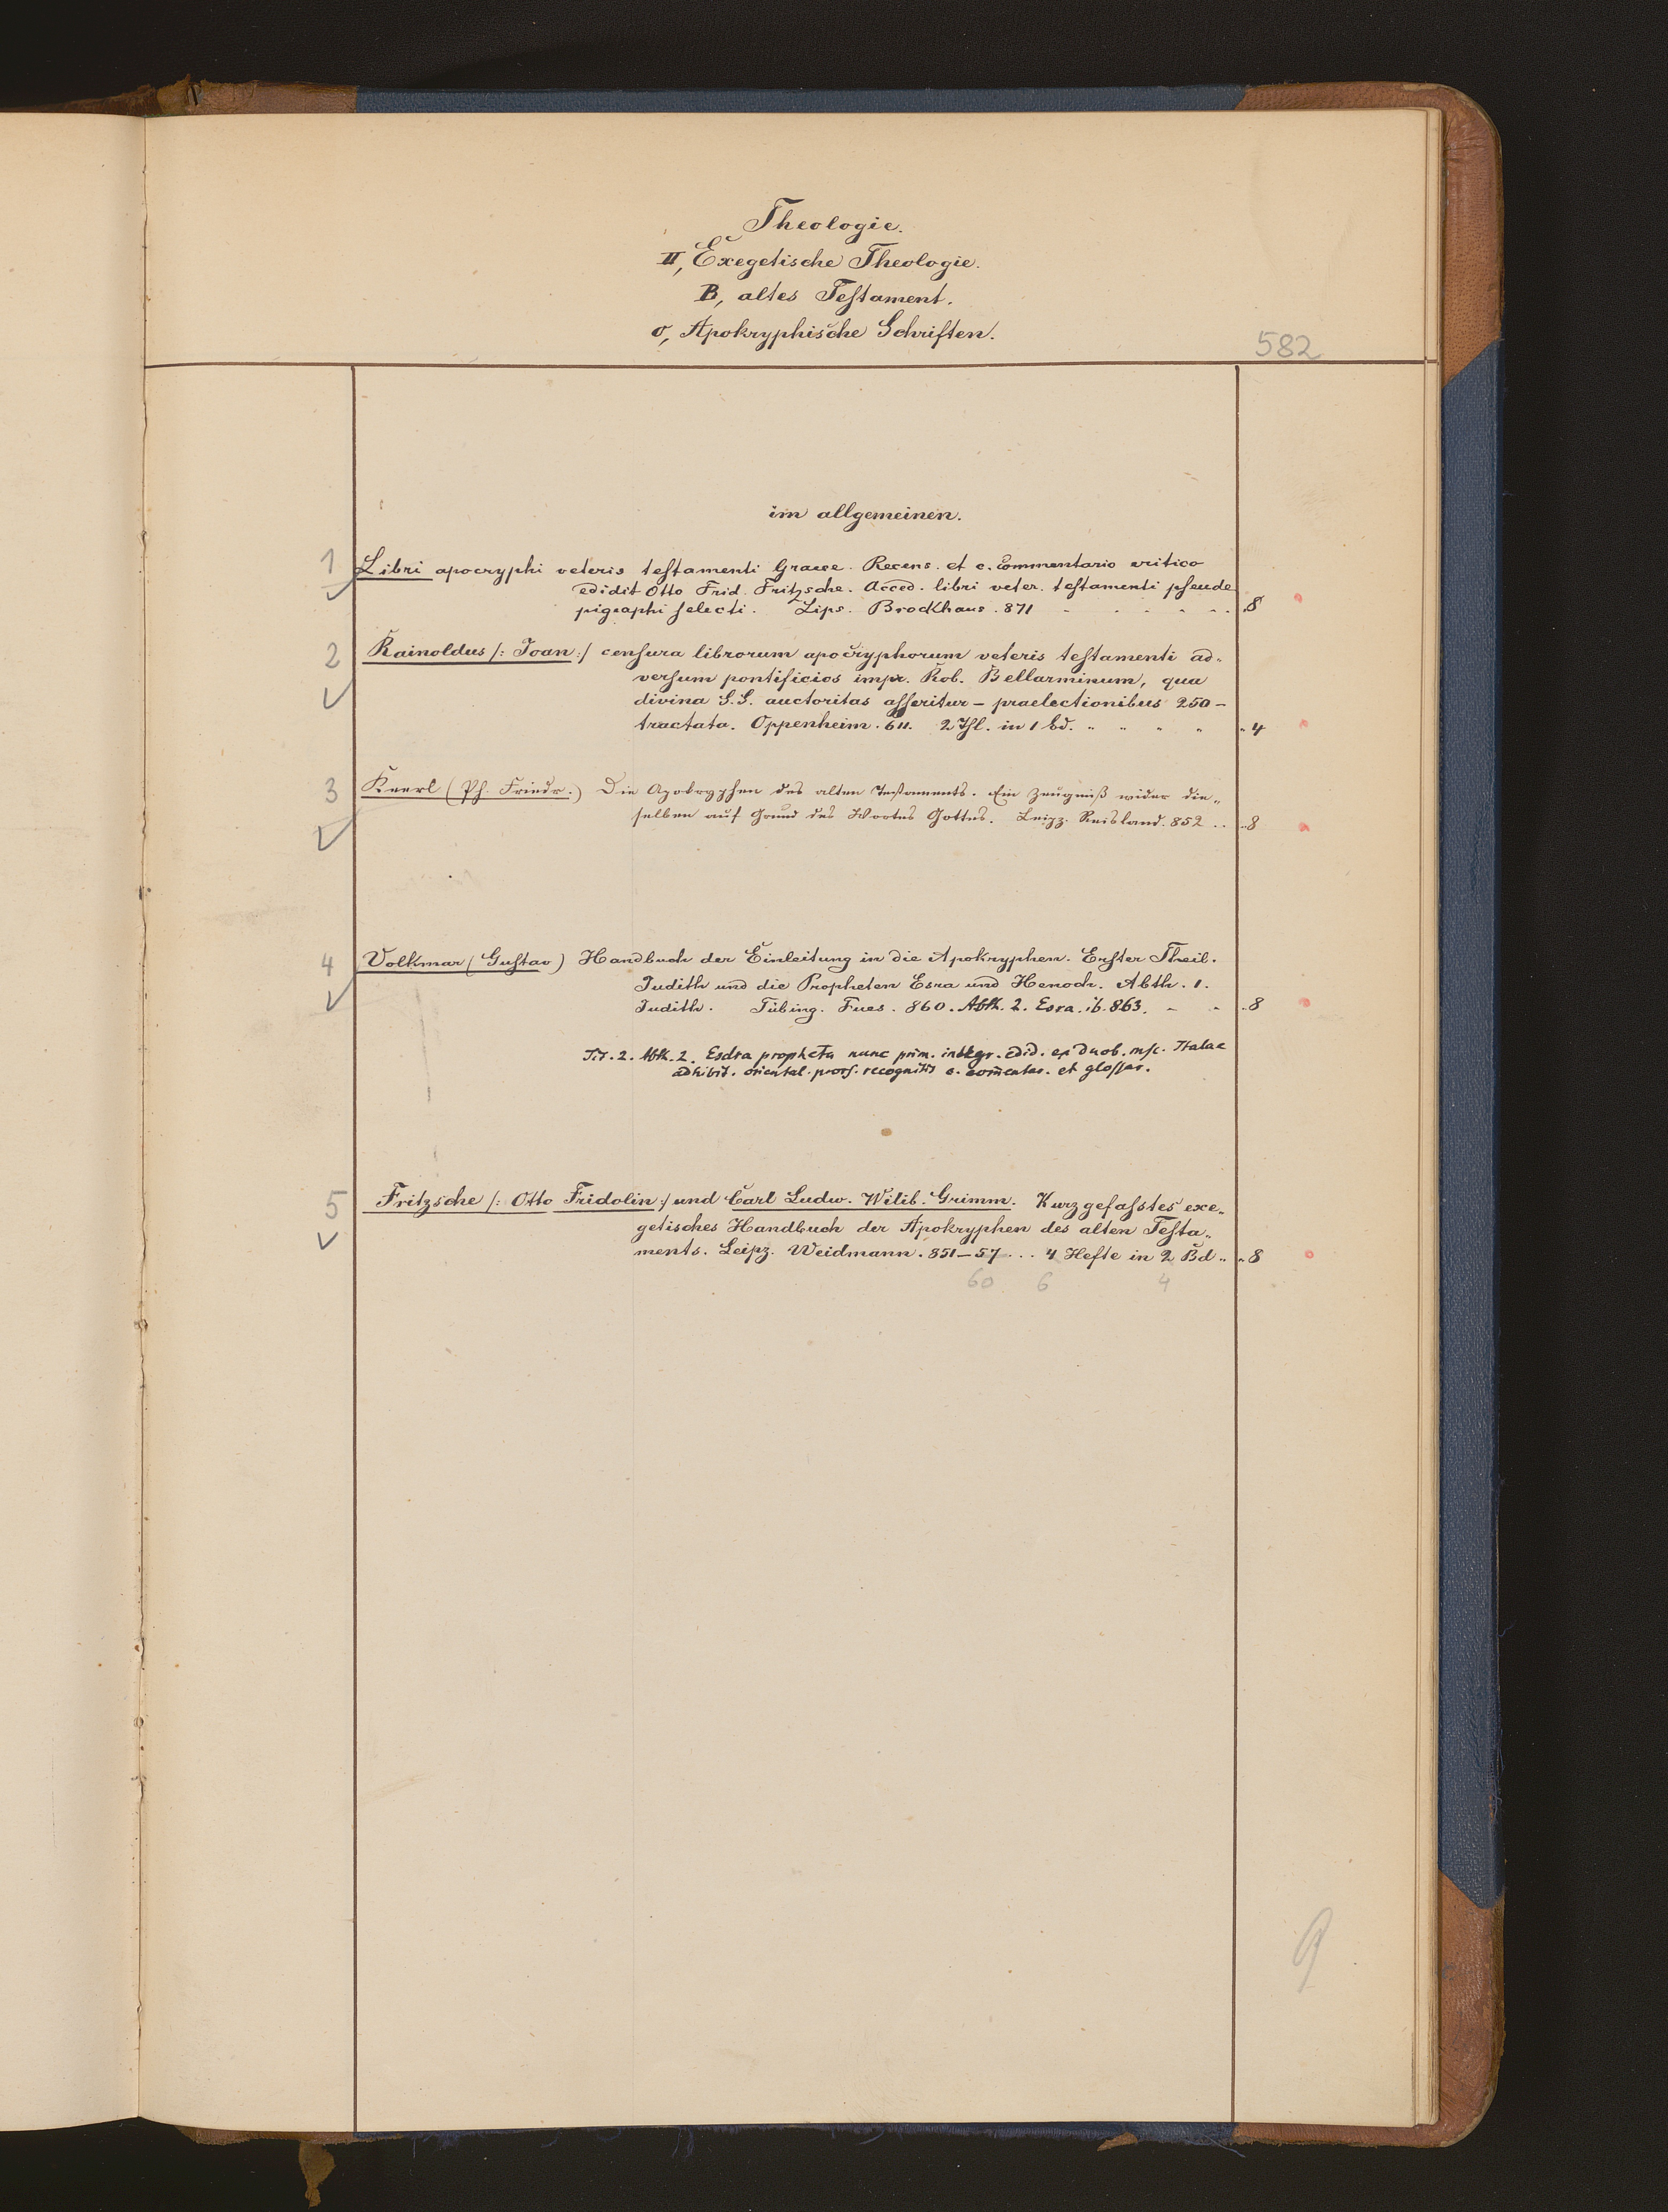 Theologie.
II, Exegetische Theologie.
B, altes Testament.
o, Apokryphische Schriften.
582
im allgemeinen.
1 Libri apocryphi veteris testamenti Graece. Recens. et c. commentario critico
edidit Otto Frid. Fritzsche. Acced. libri veter. testamenti pseude
pigraphi selecti. Lips. Brockhaus. 871 8
2 Rainoldus /: Joan :/ censura librorum apocryphorum veteris testamenti ad„
versum pontificios impr. Rob. Bellarminum, qua
divina S.S. auctoritas asseritur – praelectionibus 250 –
tractata. Oppenheim. 611. 2 Thl. in 1 Bd. " " " " " 4
3 Keerl (Ph. Friedr.) Die Apokryphen des alten Testaments. Ein Zeugniß wider die„
selben auf Grund des Wortes Gottes. Leipz. Reisland. 852 .. "8
4 Volkmar (Gustav) Handbuch der Einleitung in die Apokryphen. Erster Theil.
Judith und die Propheten Esra und Henoch. Abth. 1.
Judith. Tübing. Fues. 860. Abth. 2. Esra. ib. 863. " " "8
Tit. 2. Abth. 2. Esdra propheta nunc prim. integr. edid. ex duob. msc. Italae
adhibit. oriental. pors. recognitis c. com̄entar. et glossar.
5 Fritzsche /: Otto Fridolin :/ und Carl Ludw. Wilib. Grimm. Kurzgefasstes exe„
getisches Handbuch der Apokryphen des alten Testa„
ments. Leipz. Weidmann. 851–57 ... 4 Hefte in 2 Bd .. "8
60 6 4